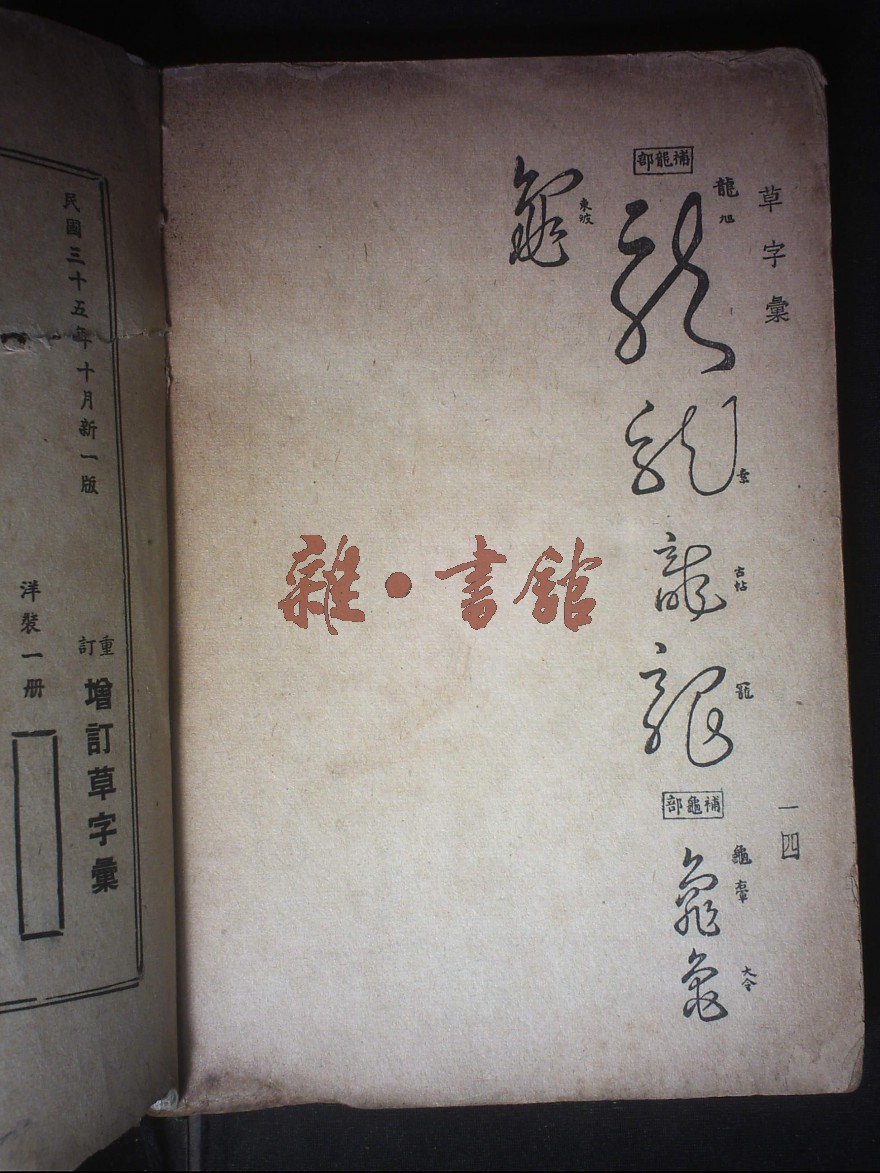 草字彙
一四
補龍部
龍 旭
龍
龍 古帖
龍
補龜部
龜
龜 大令
龜 東坡
民國三十五年十月新一版
重訂
增訂草字彙
洋裝一册
雜·書館